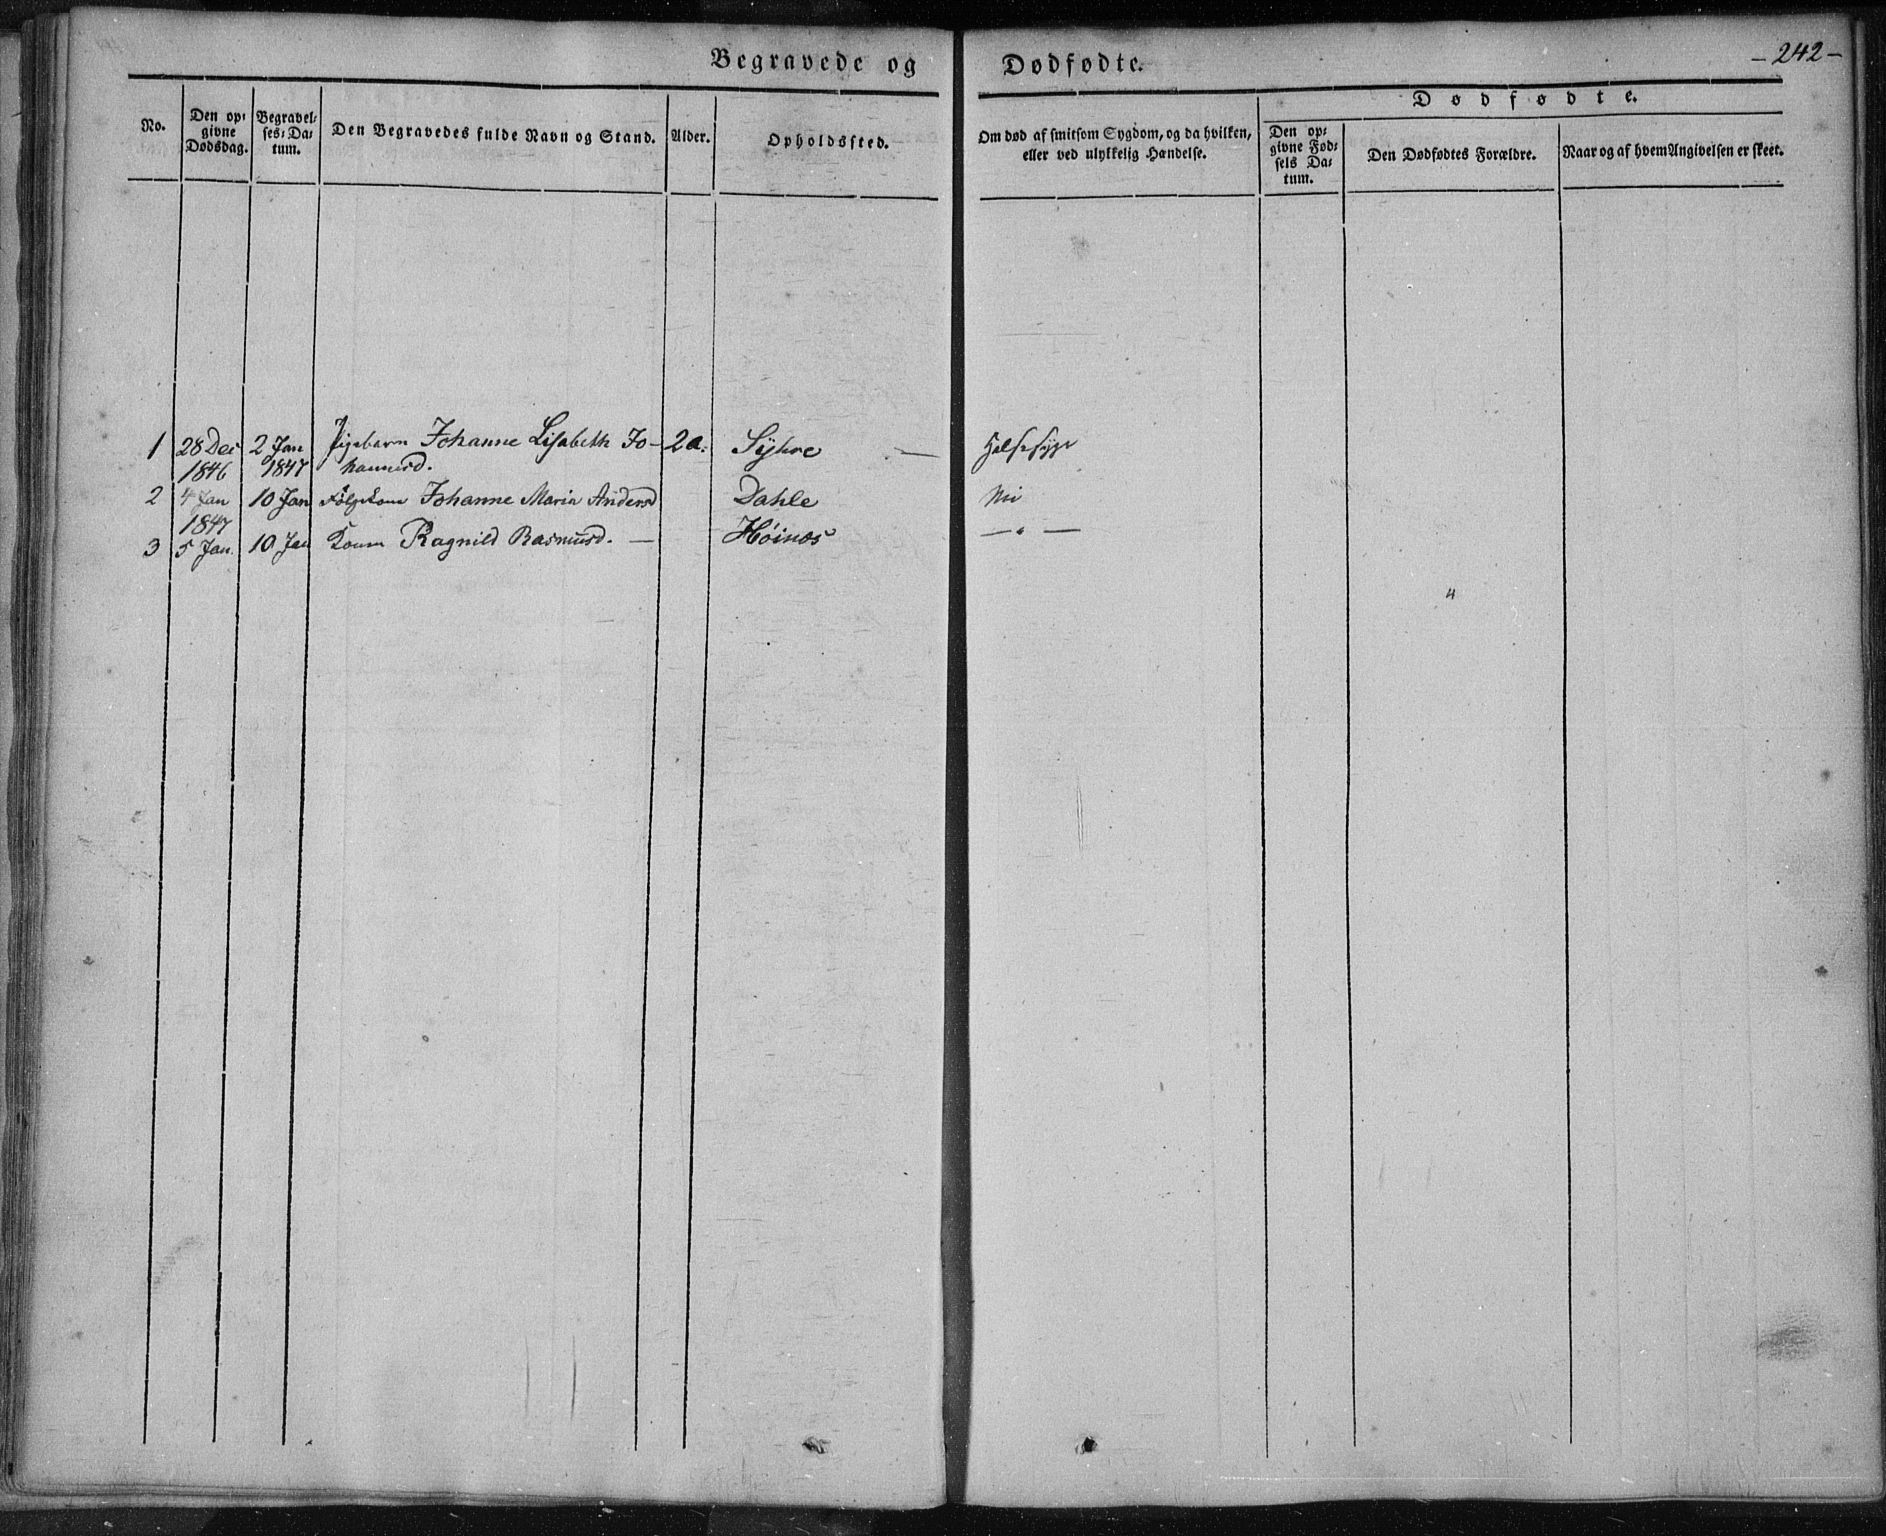 Begravede og Dødfødte.
- 242 -
No.
Den op-
givne
Dødsdag.
Begravel-
ses-Da-
tum.
Den Begravedes fulde Navn og Stand.
Alder.
Opholdssted.
Om død af smitsom Sygdom, og da hvilken,
eller ved ulykkelig Hændelse.
Dødfødte.
Den op-
givne Fød-
sels Da-
tum.
Den Dødfødtes Forældre.
Naar og af hvem Angivelsen er skeet.
1 28 Dec 2 Jan Pigebarn Johanne Lisabeth Jo- 2 a. Sÿhre Halsesyge
1846 1847 hannesd.
2 4 Jan 10 Jan Johanne Maria Andersd Dahle Nei
1847
3 5 Jan. 10 Jan Konen Ragnild Rasmusd. — Høinæs — " —